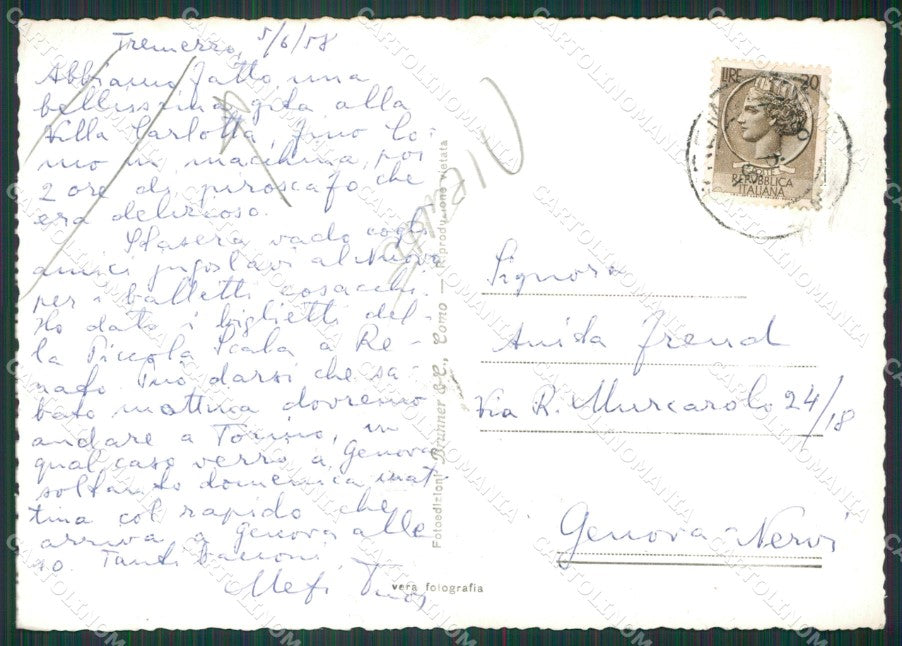 Tremezzo, 5/6/58
Abbiamo fatto una
bellissima gita alla
Villa Carlotta, fino Co-
mo in macchina, poi
2 ore di piroscafo che
era delizioso.
Stasera vado cogli
amici jugoslavi al Nuovo
per i balletti cosacchi.
Ho dato i biglietti del-
la Piccola Scala a Re-
nato. Può darsi che sa-
bato mattina dovremo
andare a Torino, in
qual caso verrò a Genova
soltanto domenica mat-
tina col rapido che
arriva a Genova alle
10. Tanti bacioni
LIRE 20
REPUBBLICA
ITALIANA
Signora
Anida Freud
Via R. Murcarolo 24/18
Genova-Nervi
Fotoedizioni Brunner & C., Como — Riproduzione vietata
vera fotografia
CARTOLINOMANIA